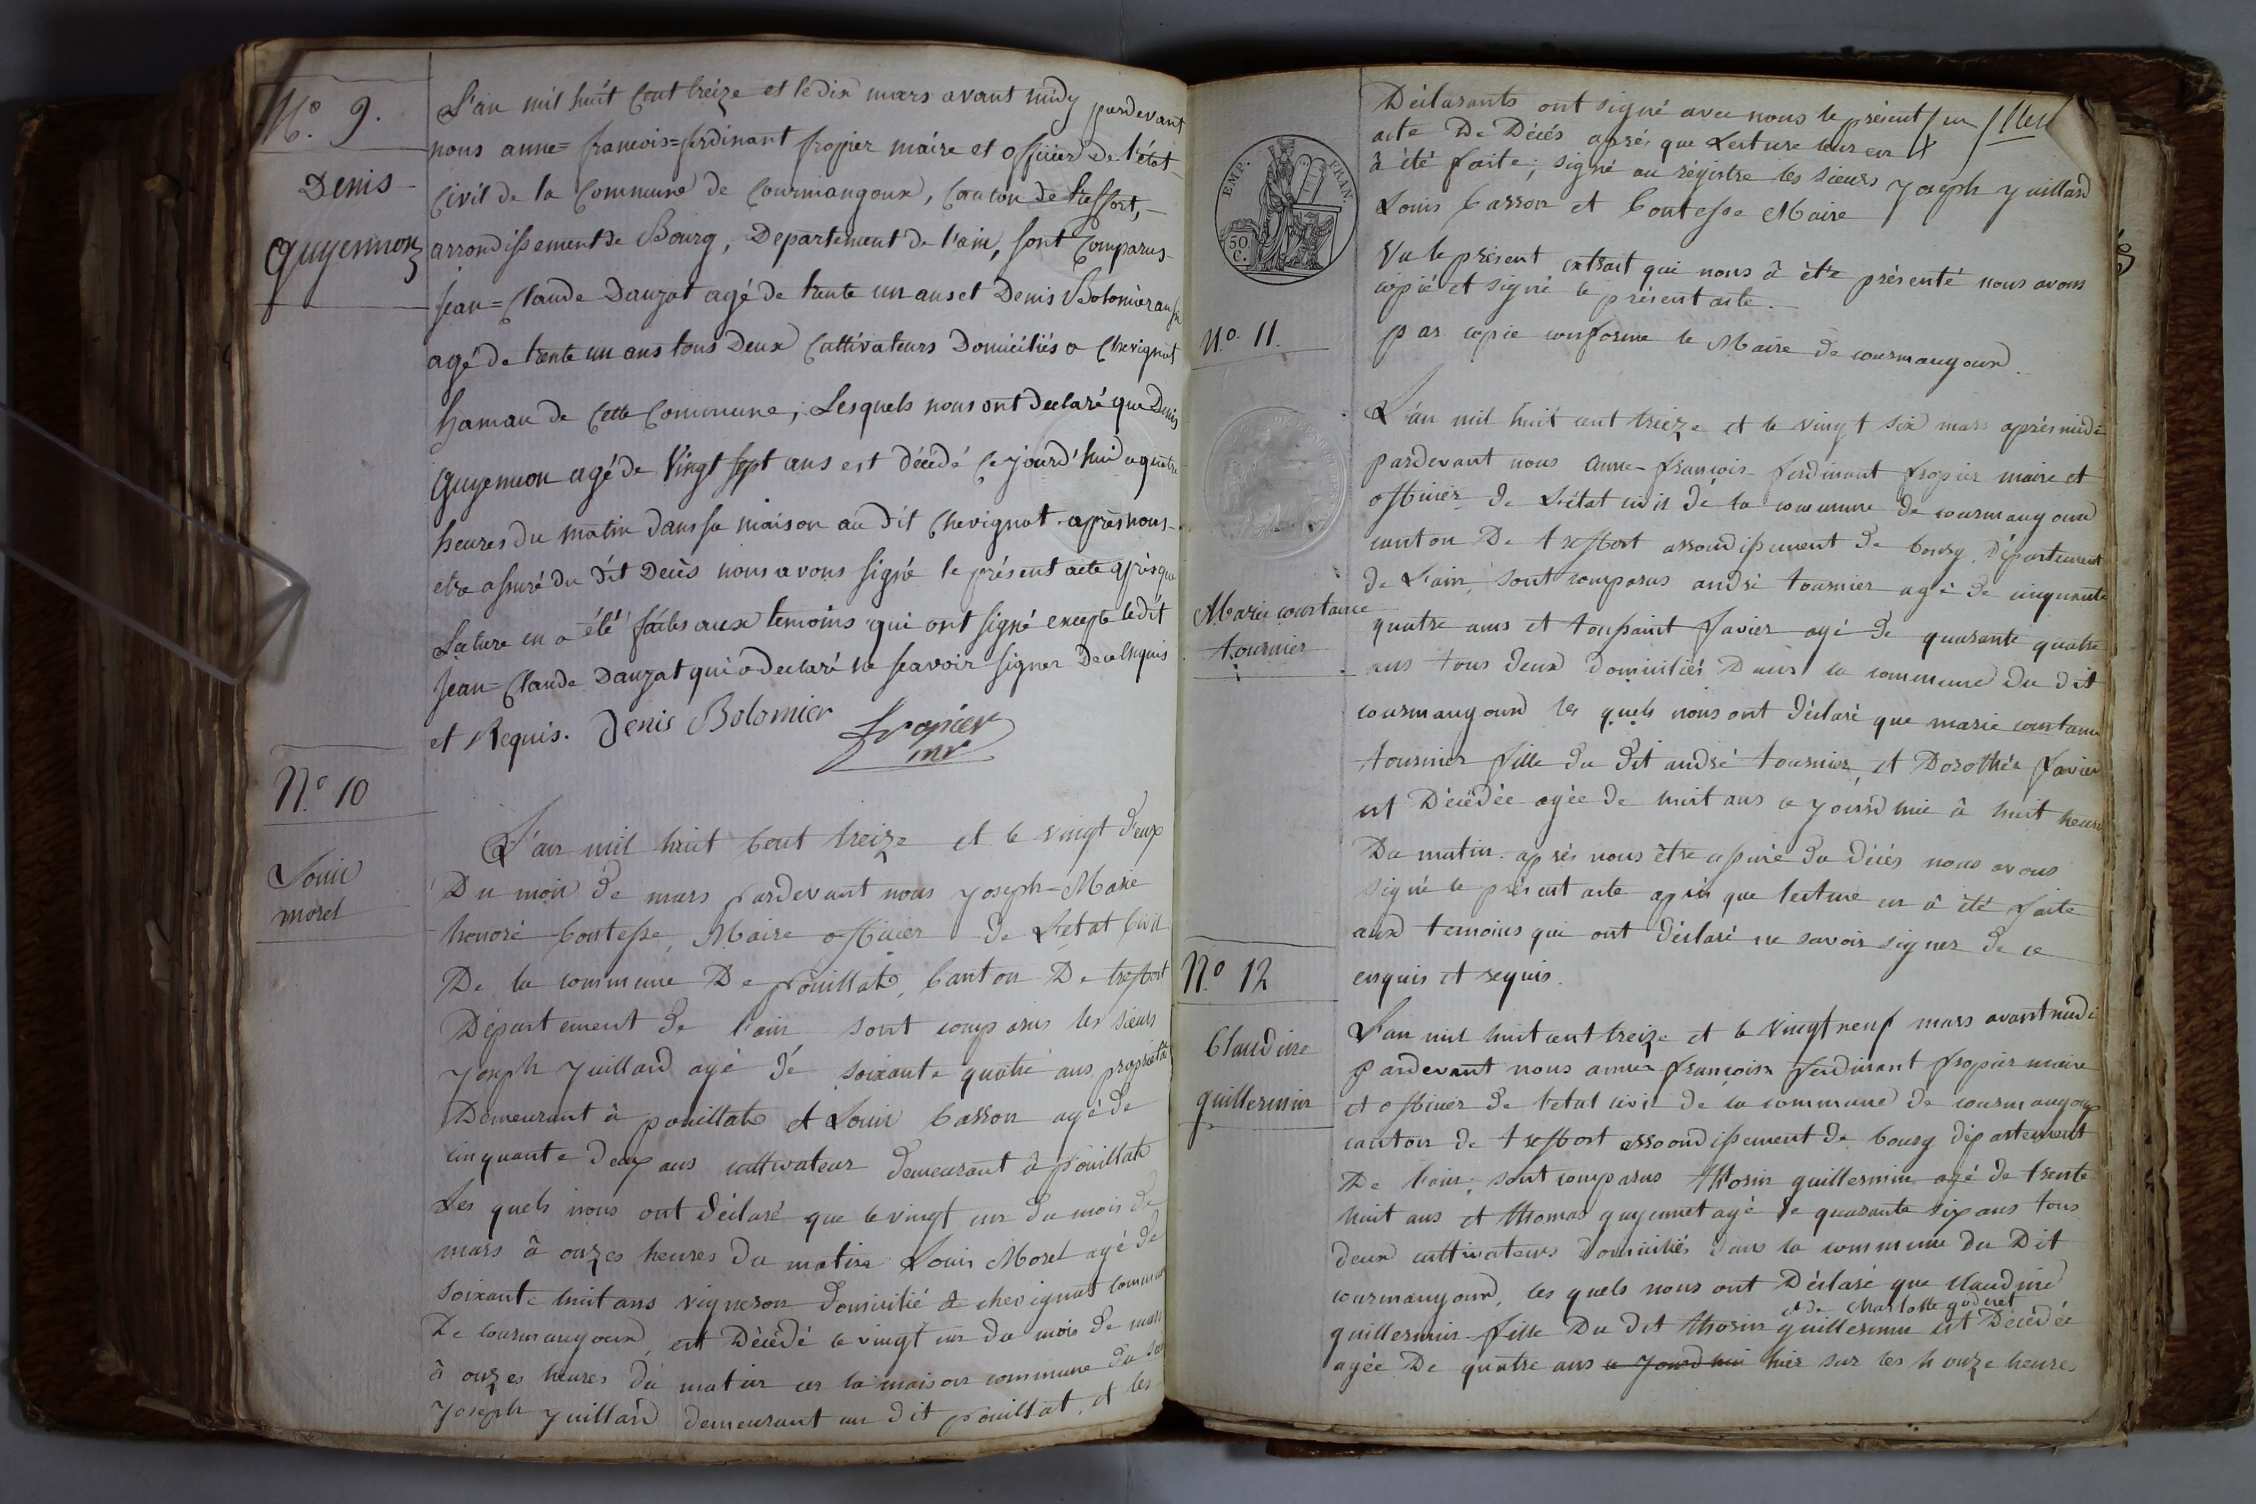 N.° 9.
Denis
Guyennon
L'an mil huit Cent treize et le dix mars avant midy pardevant
nous anne= francois=ferdinant fropier maire et officier de l'état
Civil de la Commune de Courmangoux, Canton de treffort,
arrondissement de Bourg, Departement de l'ain, sont Comparus
jean=Claude Dauzat agé de trente un ans et Denis Bolomier aussi
agé de trente un ans tous deux Cultivateurs Domiciliés a Chevignat
hamau de Cette Commune; Lesquels nous ont declaré que Denis
Guyennon agé de Vingt sept ans est décédé Ce jourd'hui a quatre
heures du matin dans sa maison au dit Chevignat. après nous
etre assuré du dit Decès nous avons signé le présent acte après que
Lecture en a été faites aux temoins qui ont signé excepte le dit
jean=Claude Dauzat qui a declaré ne scavoir signer de ce Enquis
et Requis. Denis Bolomier
fropier
mr
N.° 10
Louis
morel
L'an mil huit Cent treize et le vingt deux
Du mois de mars pardevant nous Joseph-Marie
honoré Contesse, Maire officier de L'état Civil
De la commune De Pouillat, Canton De treffort
Département de l'ain sont comparus les sieurs
Joseph Juillard agé de soixante quatre ans propriétaire
Demeurant à pouillat et Louis Casson agé de
cinquante deux ans cultivateur demeurant à Pouillat
Les quels nous ont déclaré que le vingt un du mois de
mars à onzes heures du matin Louis Morel agé de
soixante huit ans vigneron domicilié à chevignat commune
De courmangoux, est Décédé le vingt un du mois de mars
à onzes heures du matin en la maison commune du sr
Joseph Juillard demeurant au dit Pouillat, et les
EMP. FRAN.
50 C.
Déclarants ont signé avec nous le présent
acte De Décés aprés que Lecture leur en
à été faite; signé au régistre les sieurs Joseph Juillard
Louis Casson et Contesse Maire
Vu le présent extrait qui nous à ètre présenté nous avons
copié et signé le présent acte.
par copie conforme le Maire de courmangoux.
N.° 11.
Marie constance
tournier
L'an mil huit cent treize et le vingt six mars aprés midi
pardevant nous Anne-françois ferdinant fropier maire et
officier de L'état civil de la commune de courmangoux
canton De treffort arrondissement de bourg, Département
de L'ain, sont comparus andré tournier agé de cinquante
quatre ans et toussaint favier agé de quarante quatre
ans tous deux domiciliés Dans la commune du dit
courmangoux les quels nous ont déclaré que marie constance
tournier fille du dit andré tournier, et Dorothée favier
est Décédée agée de huit ans ce jourd'hui à huit heures
Du matin. aprés nous être assuré du décés nous avons
signé le présent acte aprés que lecture en à été faite
aux temoins qui ont déclaré ne savoir signer de ce
enquis et requis.
N.° 12
Claudine
guillermin
L'an mil huit cent treize et le vingt neuf mars avant midi
pardevant nous anne françois ferdinant fropier maire
et officier de l'etat civil de la commune de courmangoux
canton de treffort arrondissement de bourg département
De l'ain, sont comparus thorin guillermin agé de trente
huit ans et thomas guyennet agé de quarante six ans tous
deux cultivateurs domiciliés dans la commune du Dit
courmangoux, les quels nous ont Déclaré que Claudine
et de charlotte goderet
guillermin fille Du dit thorin guillermin est Décédée
agée De quatre ans ce jourd'hui hier sur les honze heures